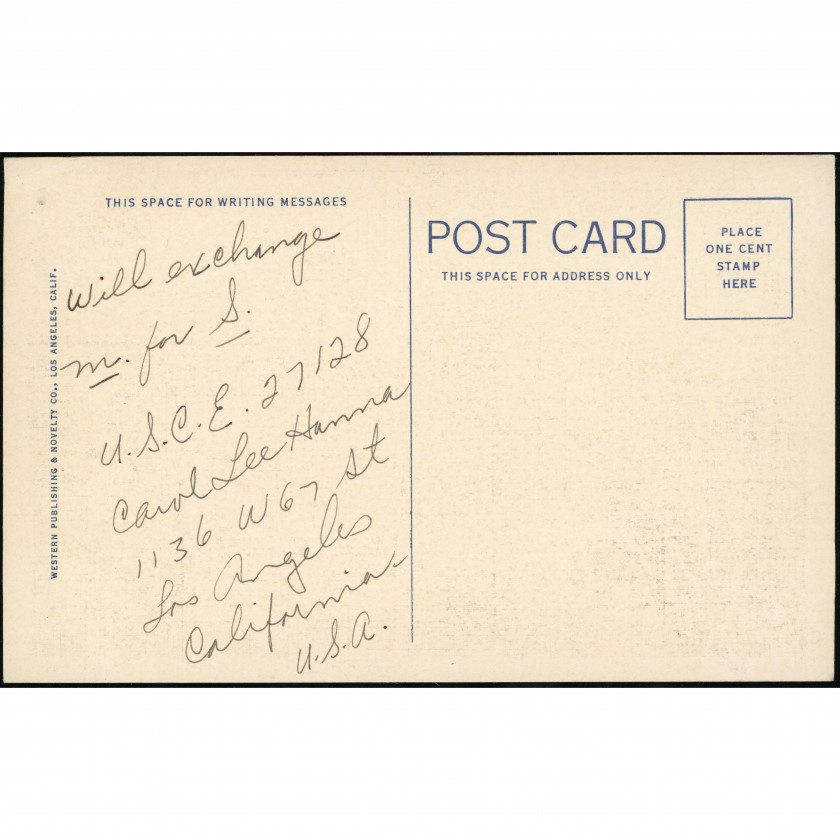 THIS SPACE FOR WRITING MESSAGES
Will exchange
m. for S.
U.S.C.E. 27128
Carol Lee Hanna
1136 W 67 St
Los Angeles
California
U.S.A.
WESTERN PUBLISHING & NOVELTY CO., LOS ANGELES, CALIF.
POST CARD
THIS SPACE FOR ADDRESS ONLY
PLACE
ONE CENT
STAMP
HERE